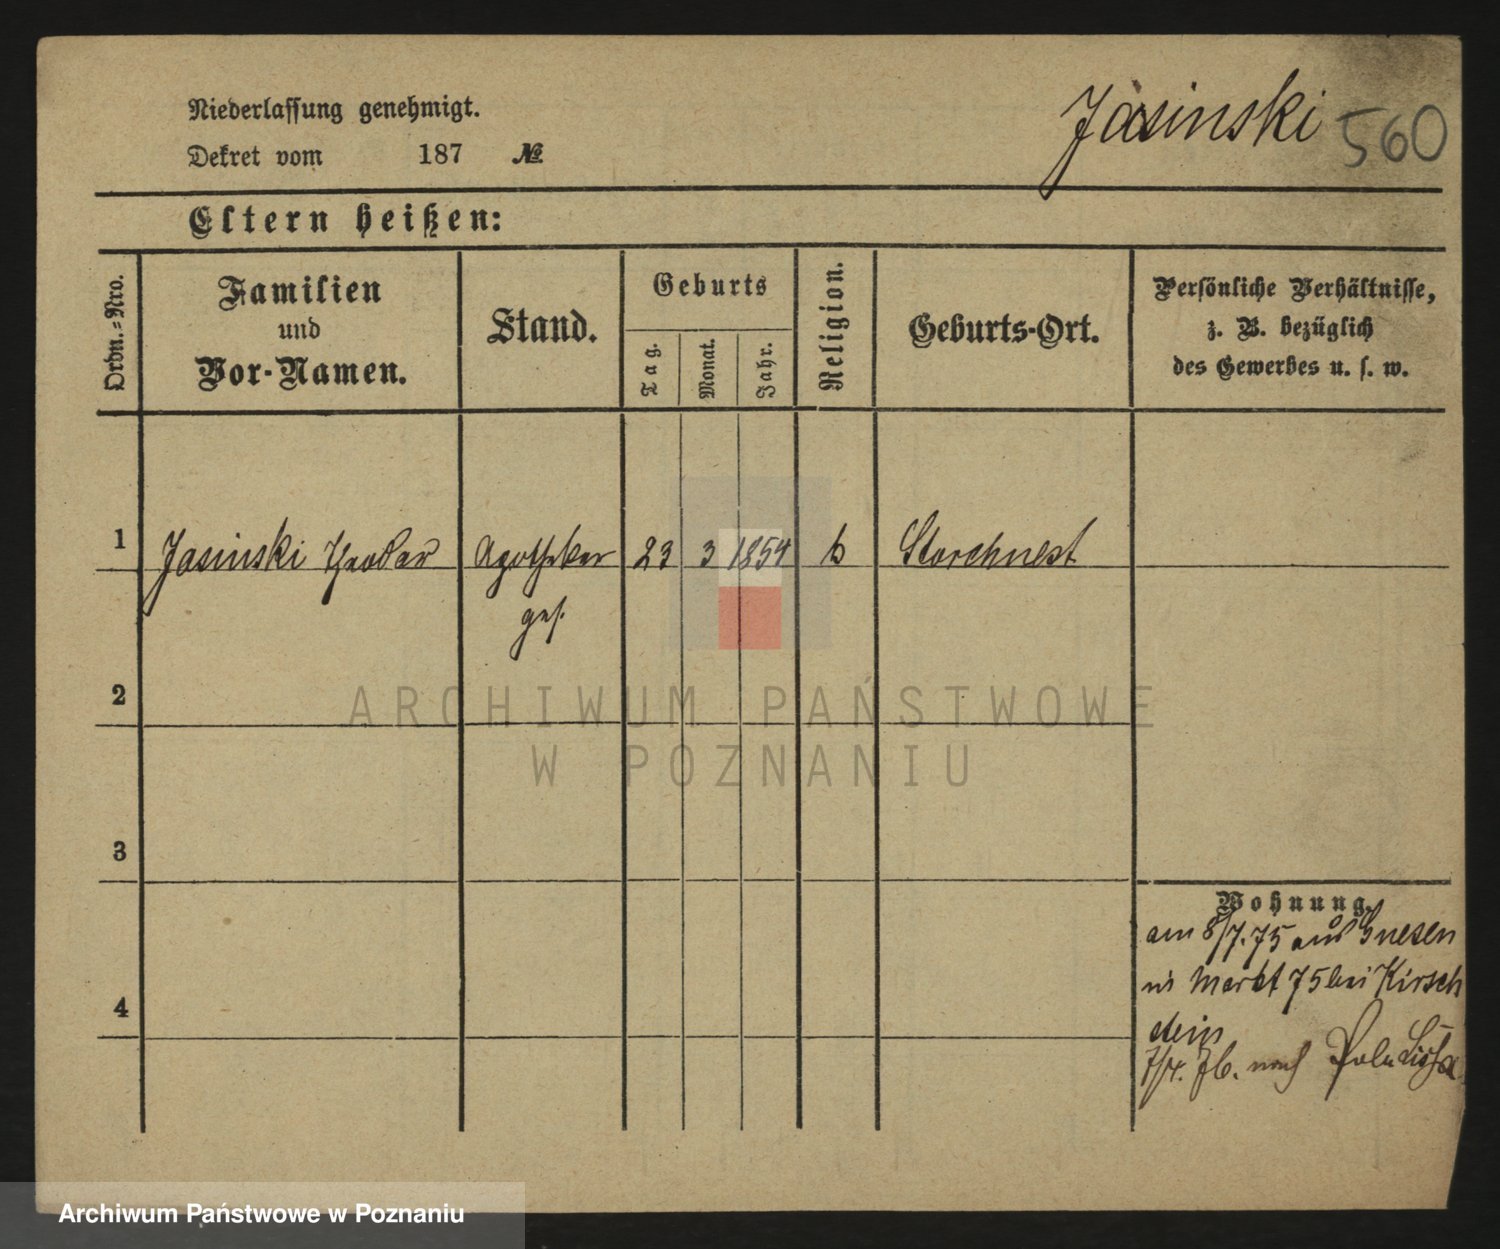 Niederlassung genehmigt.
Jasinski 560
Dekret vom 187 №
Eltern heißen:
Ordn.=Nro.
Familien
und
Vor-Namen.
Stand.
Geburts
Tag.
Monat.
Jahr.
Religion.
Geburts-Ort.
Persönliche Verhältnisse,
z. B. bezüglich
des Gewerbes u. s. w.
1 Jasinski Theodor Apotheker 23 3 1854 k Storchnest
geh.
2
ARCHIWUM PAŃSTWOWE
W POZNANIU
3
Wohnung.
am 8/7.75 aus Gnesen
Markt 75 bei Kirsch
stein
4
7/4. 76. nach Poln Lissa
Archiwum Państwowe w Poznaniu